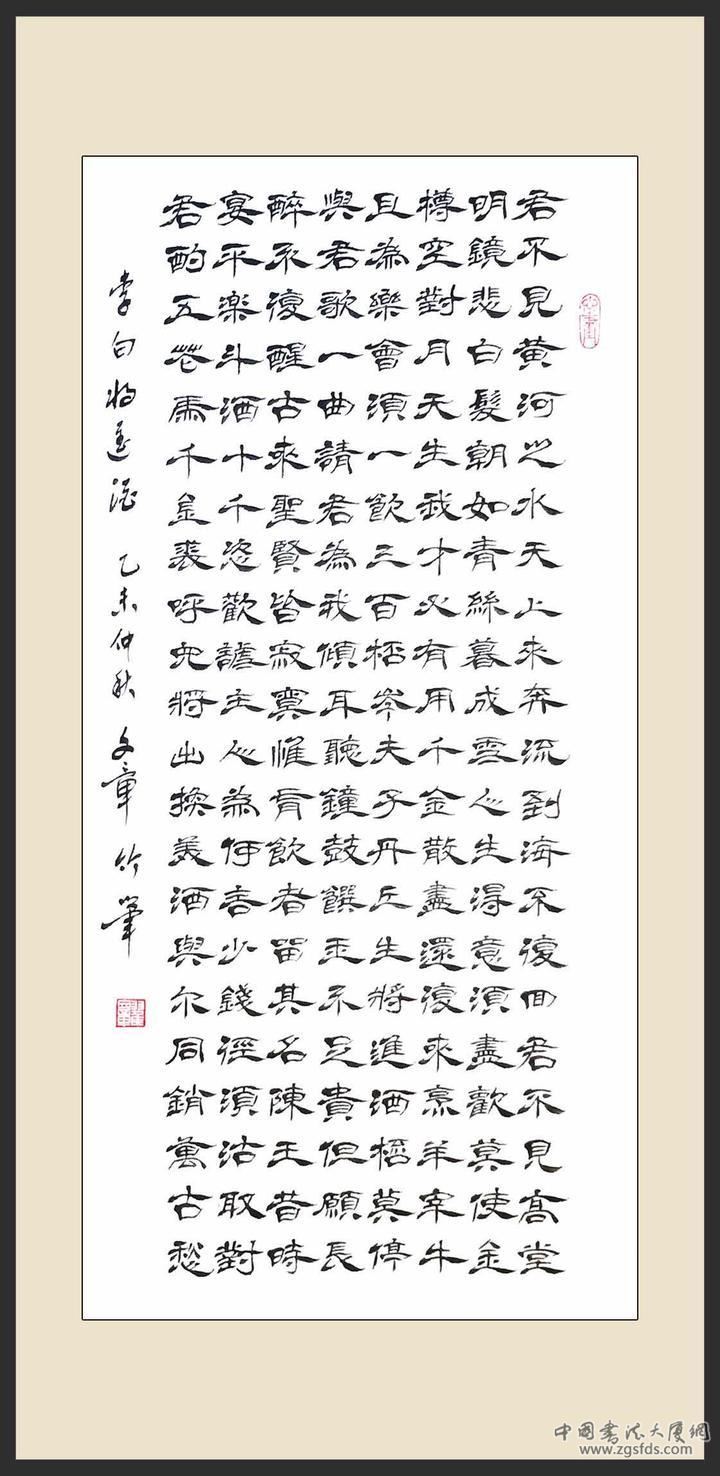 君不見黃河之水天上來奔流到海不復回君不見高堂
明鏡悲白髮朝如青絲暮成雪人生得意須盡歡莫使金
樽空對月天生我才必有用千金散盡還復來烹羊宰牛
且為樂會須一飲三百桮岑夫子丹丘生將進酒桮莫停
與君歌一曲請君為我傾耳聽鐘鼓饌玉不足貴但願長
醉不復醒古來聖賢皆寂寞惟有飲者留其名陳王昔時
宴平楽斗酒十千恣歡謔主人為何言少錢徑須沽取對
君酌五花馬千金裘呼兒將出換美酒與尔同銷萬古愁
李白将進酒 乙未仲秋 文章 竹筆
中国書法大厦網
www.zgsfds.com